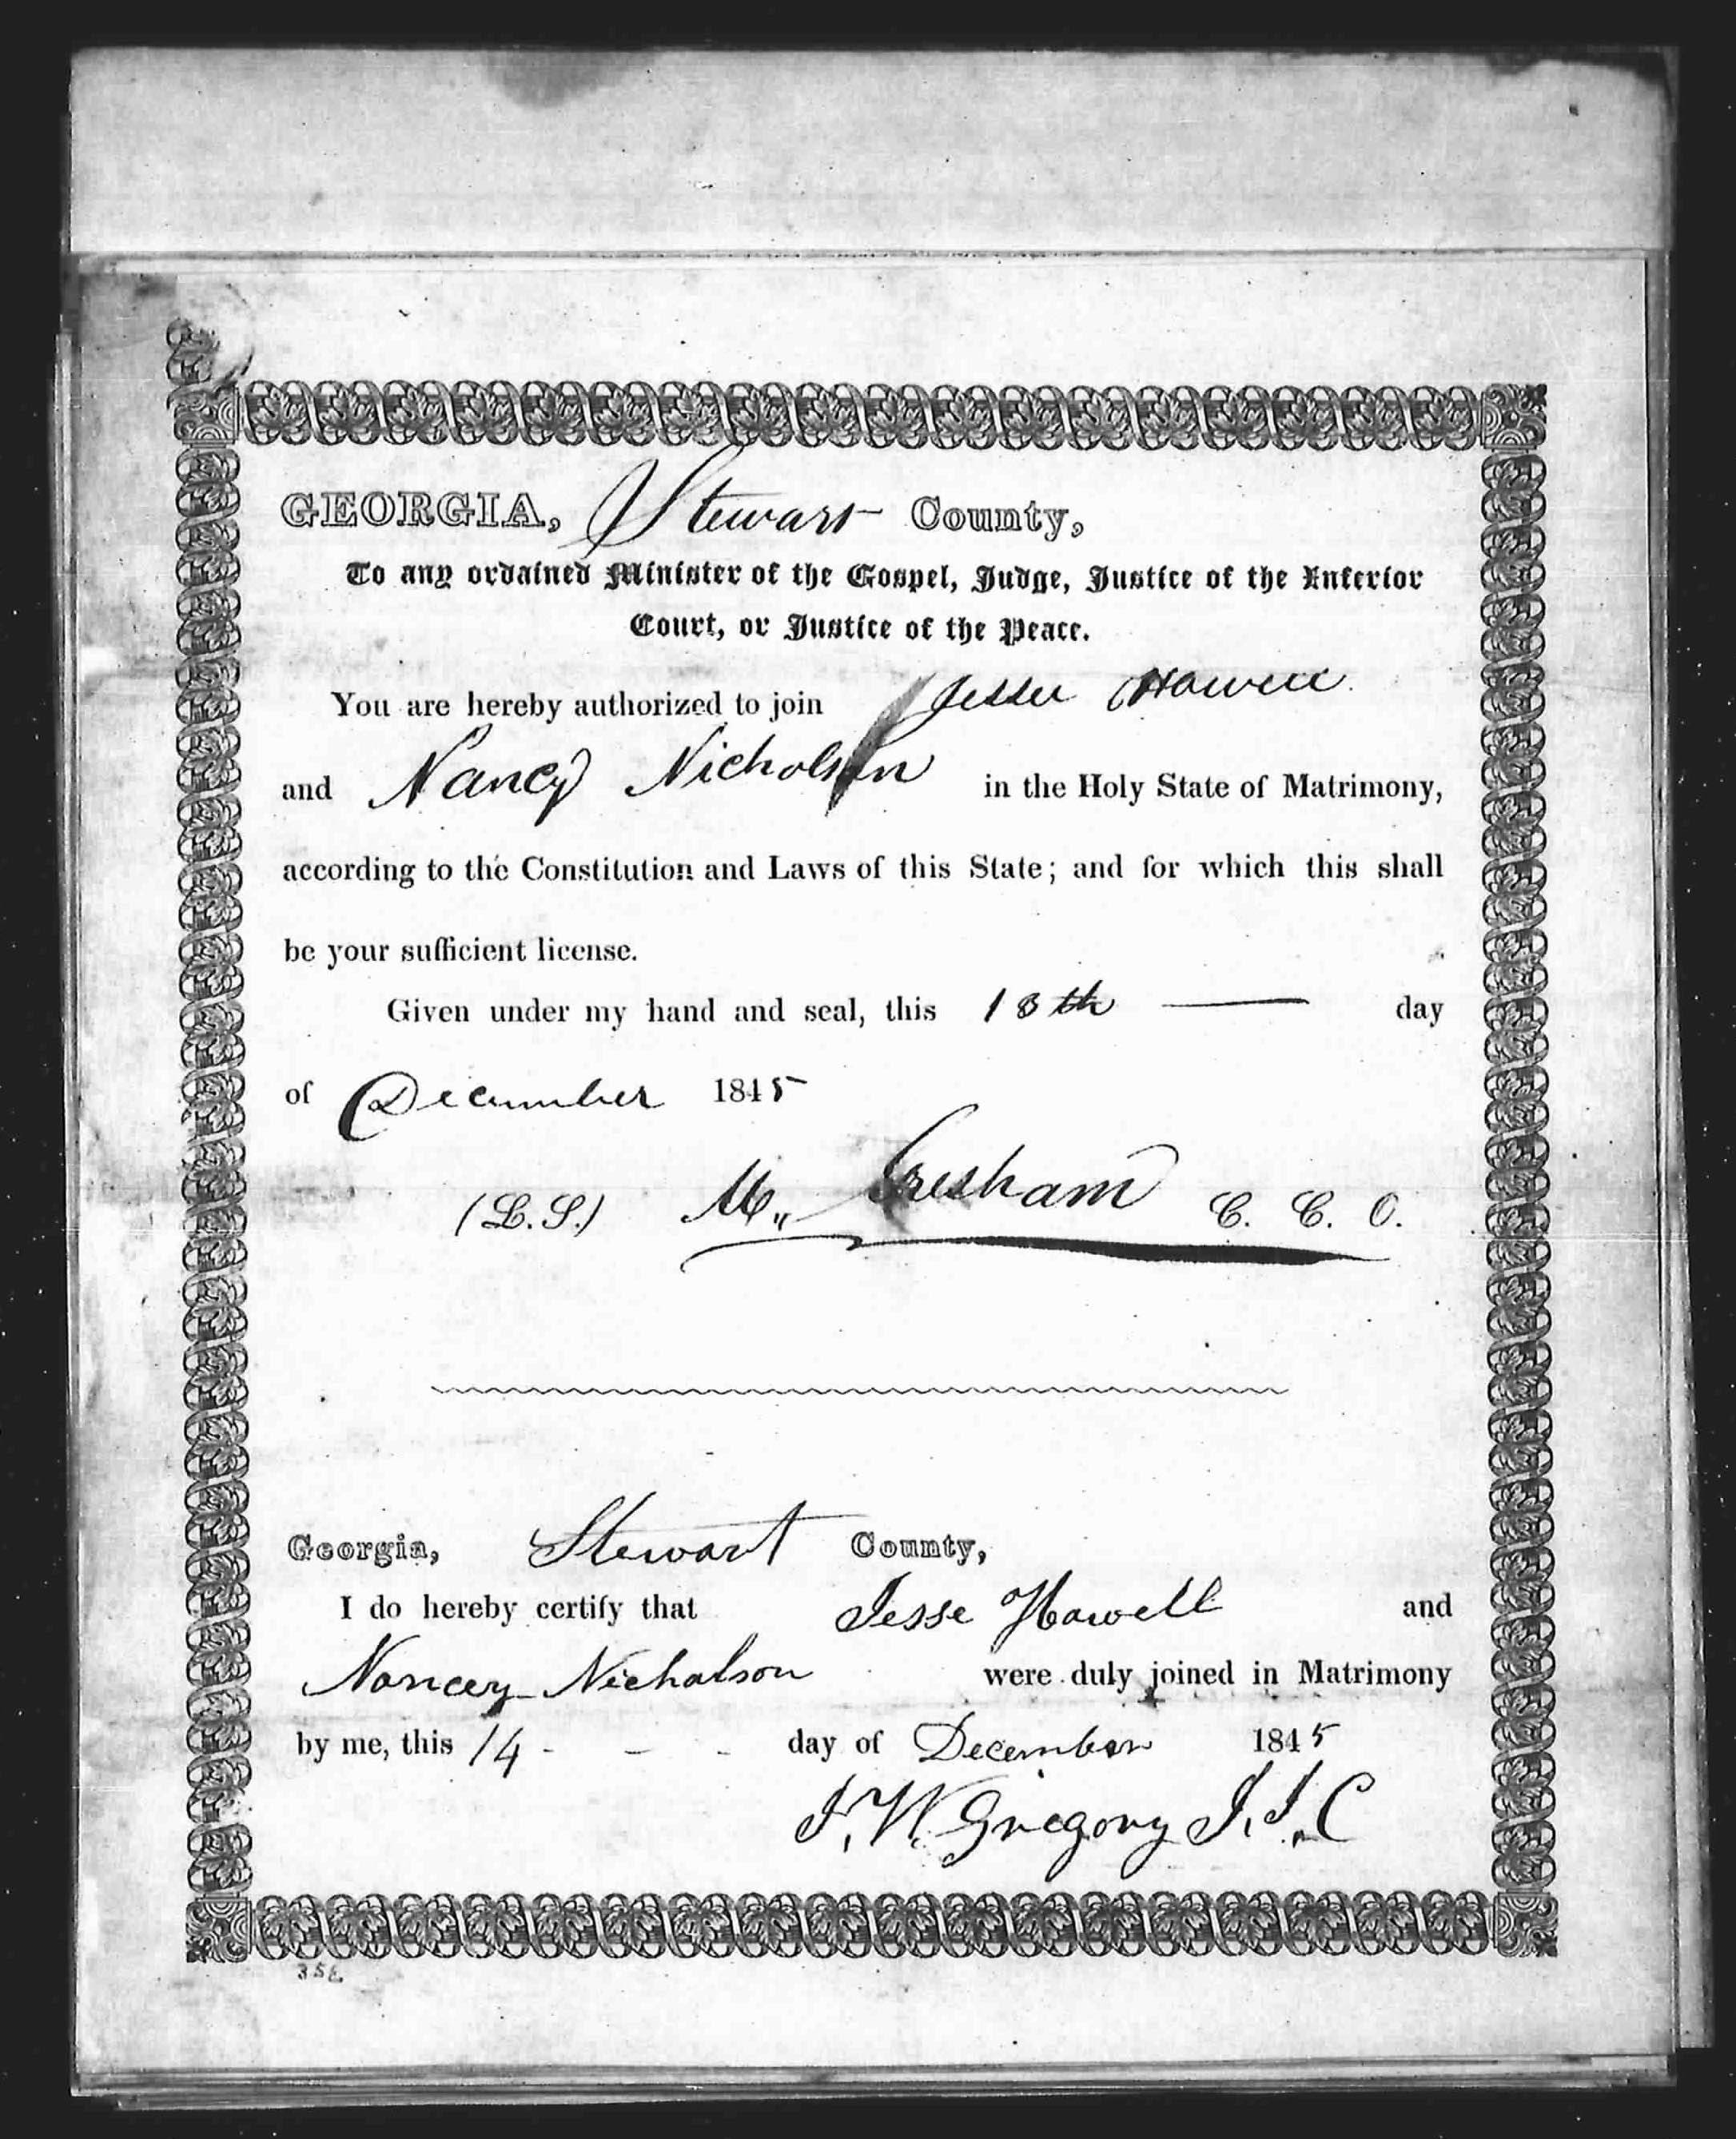 GEORGIA, Stewart County,
To any ordained Minister of the Gospel, Judge, Justice of the Inferior
Court, or Justice of the Peace.
You are hereby authorized to join Jesse Howell
and Nancy Nicholson in the Holy State of Matrimony,
according to the Constitution and Laws of this State; and for which this shall
be your sufficient license.
Given under my hand and seal, this 13th day
of December 1845
(L.S.) M. Gresham C. C. O.
Georgia, Stewart County,
I do hereby certify that Jesse Howell and
Nancey Nicholson were duly joined in Matrimony
by me, this 14 - - - day of December 1845
J. W. Gregory J. I. C